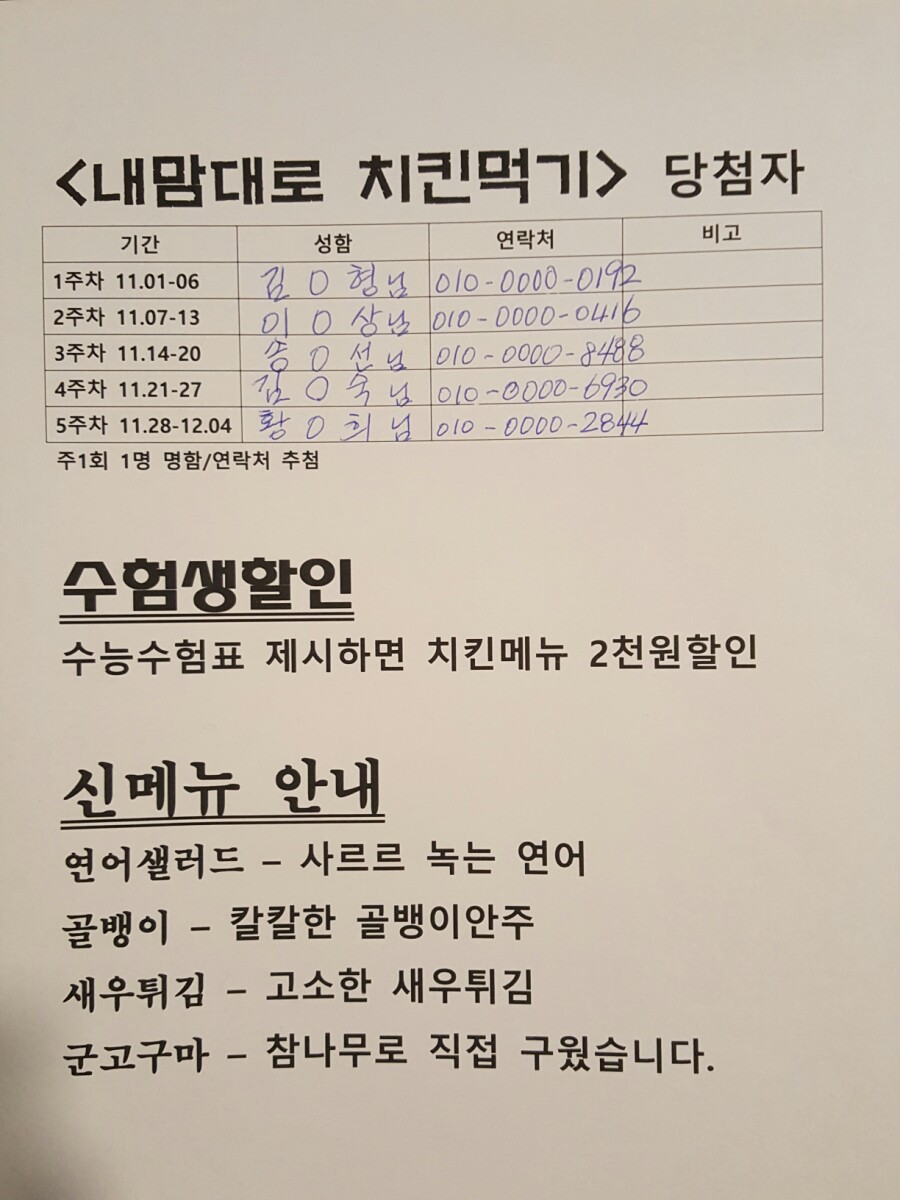 <내맘대로 치킨먹기> 당첨자
기간 성함 연락처 비고
1주차 11.01-06 김 O 형님 010-0000-0192
2주차 11.07-13 이 O 상님 010-0000-0416
3주차 11.14-20 송 O 선님 010-0000-8488
4주차 11.21-27 김 O 숙님 010-0000-6930
5주차 11.28-12.04 황 O 희님 010-0000-2844
주1회 1명 명함/연락처 추첨
수험생할인
수능수험표 제시하면 치킨메뉴 2천원할인
신메뉴 안내
연어샐러드 – 사르르 녹는 연어
골뱅이 – 칼칼한 골뱅이안주
새우튀김 – 고소한 새우튀김
군고구마 – 참나무로 직접 구웠습니다.